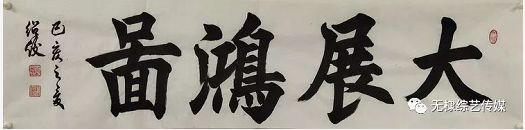 大展鴻圖
己亥之夏
无棣综艺传媒